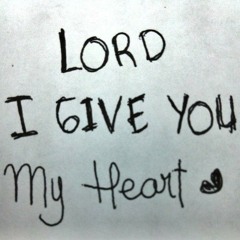 LORD
I GIVE YOU
My Heart